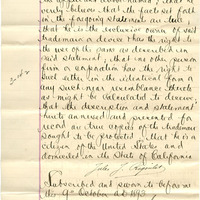 believe that the facts set forth
in the foregoing statement are true
that he is the exclusive owner of said
trademark or device or has the right to
the use of the same as described in
said statement; that no other person
firm or corporation has the right to
such either in the identical form or
any such near resemblance thereto
as might be calculated to deceive,
that the description and statement
hereto annexed and presented for
record are true copies of the trademark
sought to be protected, that he is a
citizen of the United States and
domiciled in the State of California
Subscribed and sworn to before me
this 9th October A.D. 1893